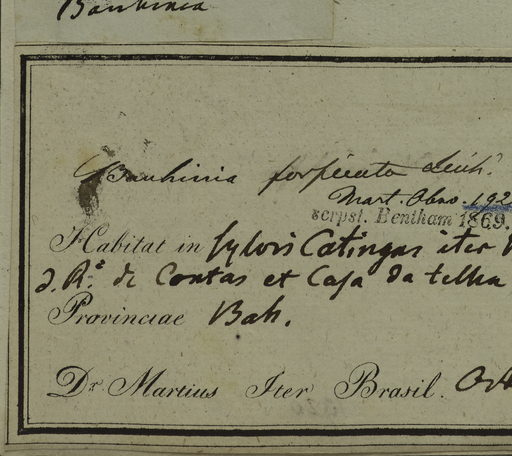 Bauhinia
Bauhinia forficata Link.
Mart. Obss. 192
scrpst. Bentham 1869.
Habitat in sylvis Catingas iter
d. R.º de Contas et Casa da telha
Provinciae Bah.
Dr. Martius Iter Brasil. Oct